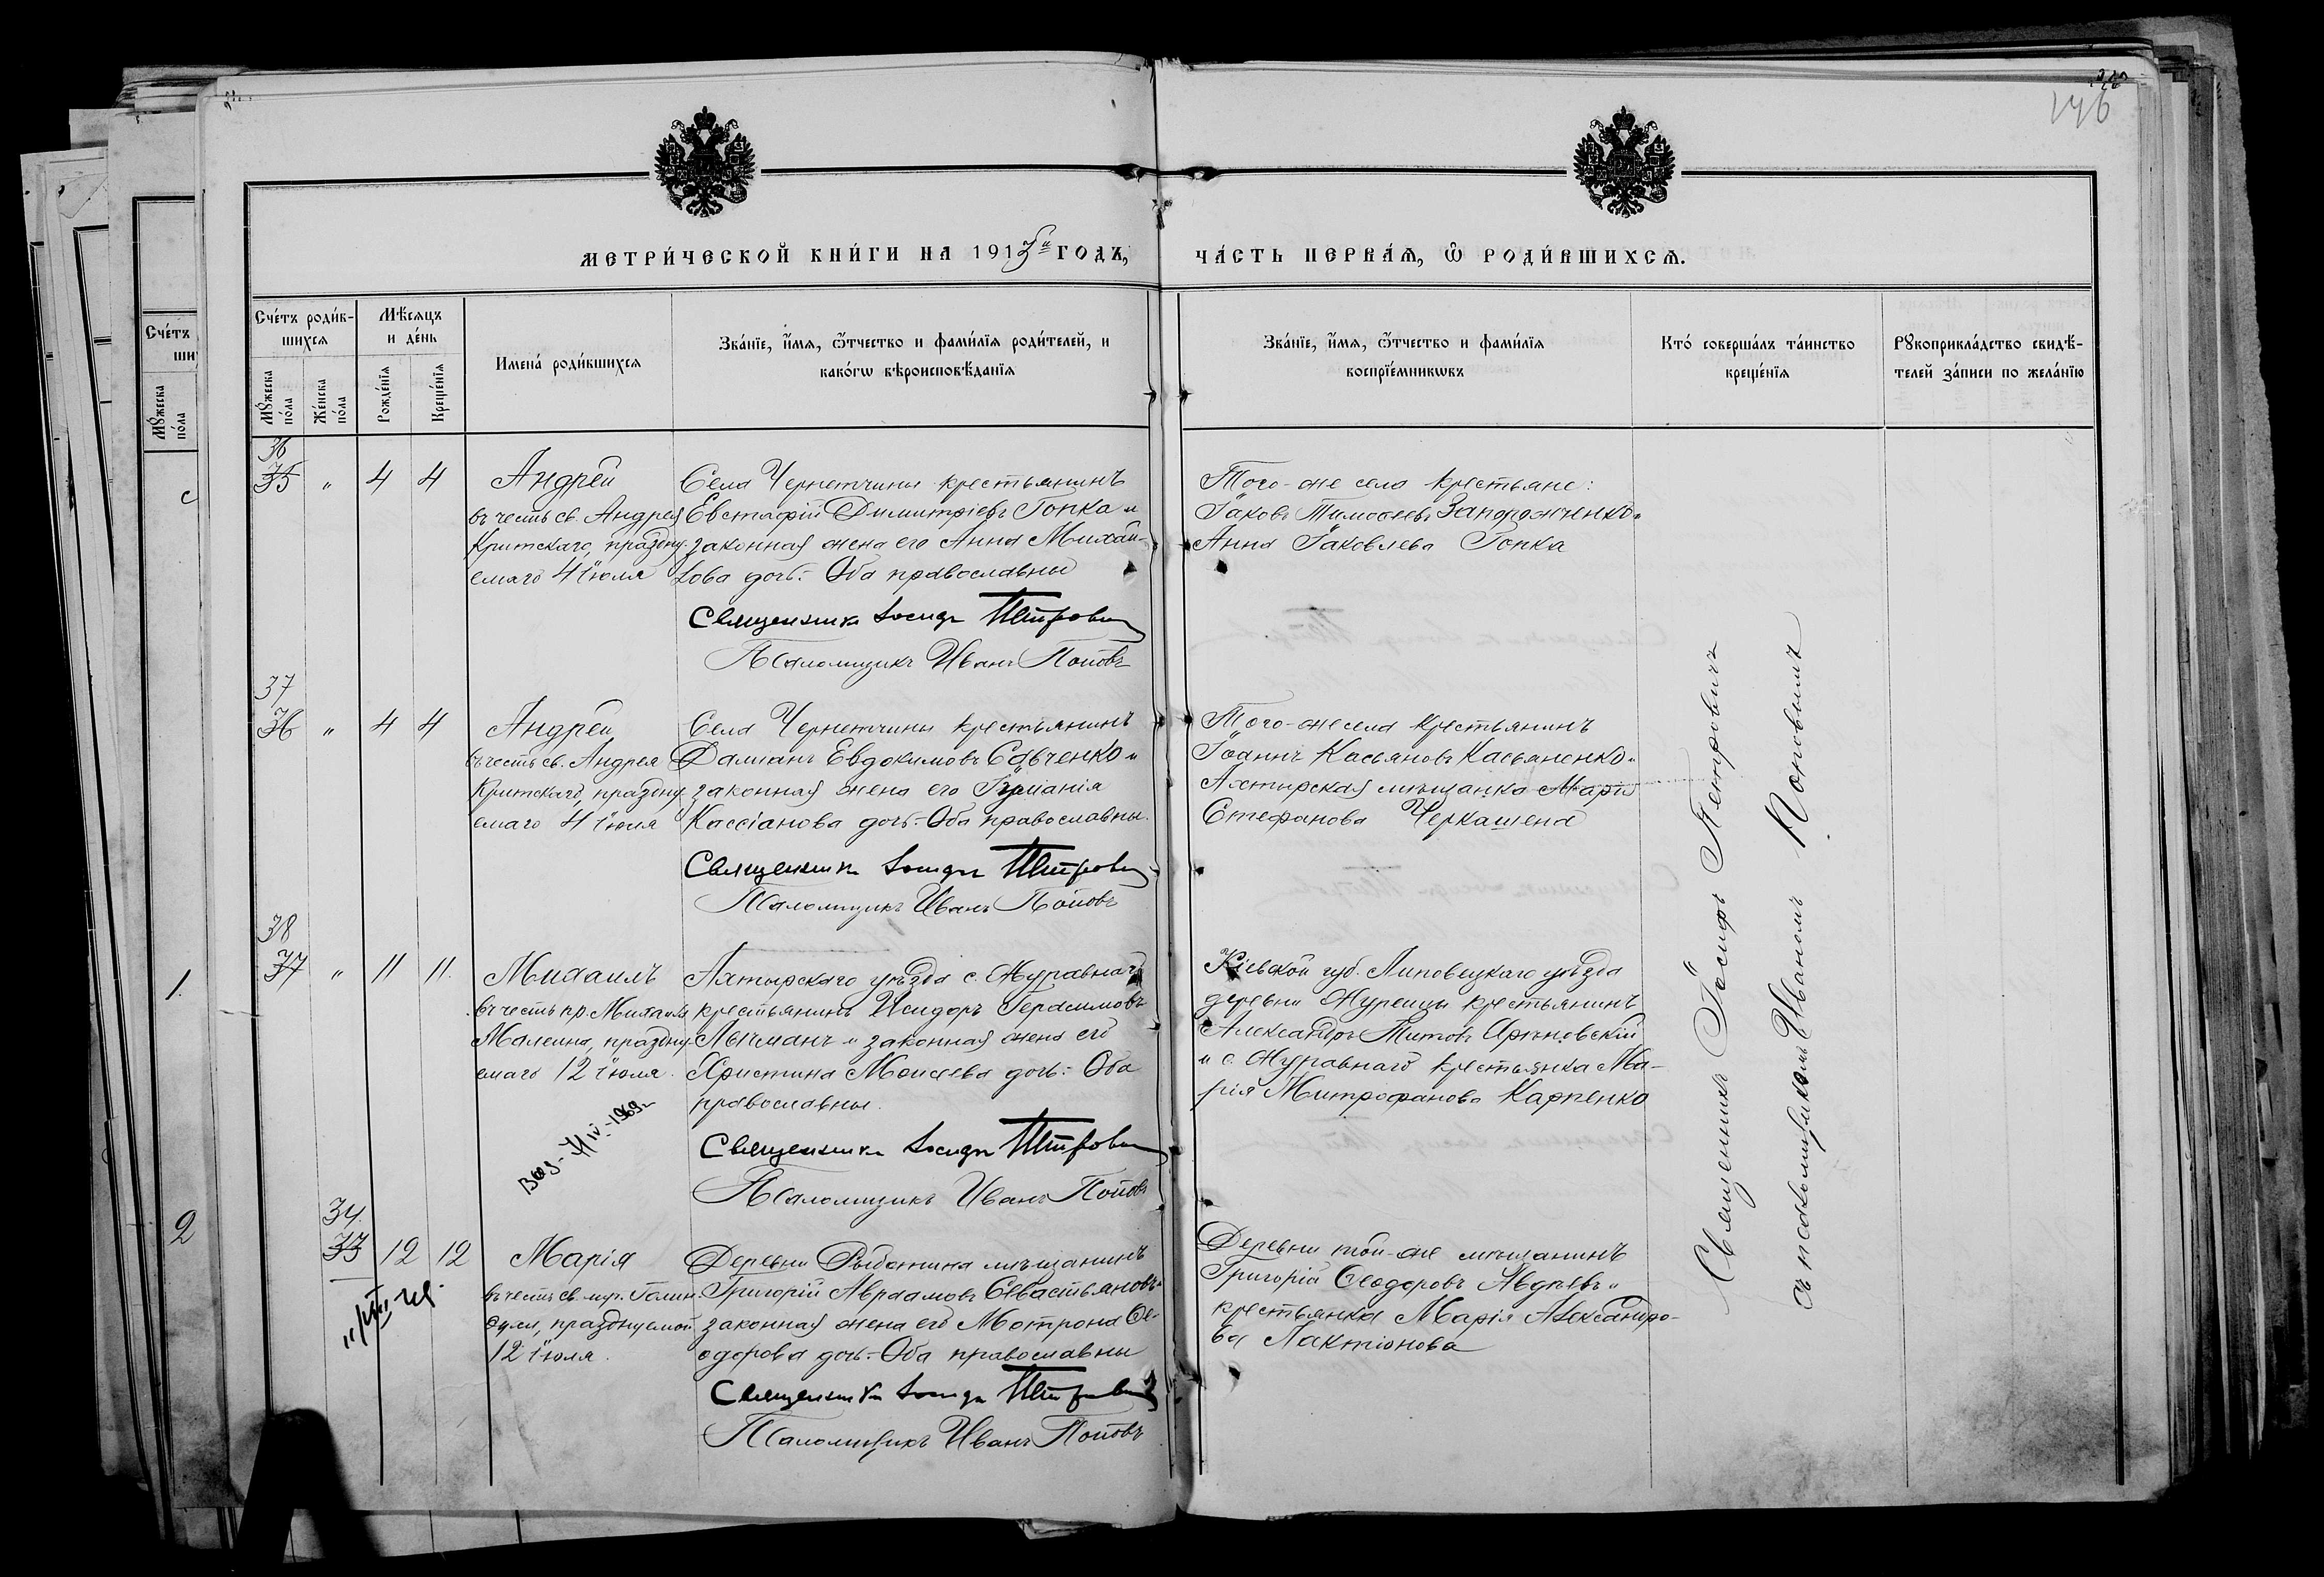 146
МЕТРИ́ЧЕСКОЙ КНИ́ГИ НА 1913й ГОДЪ, ЧА́СТЬ ПЕРВА́Ѧ, Ѽ РОДИ́ВШИХСѦ.
Сче́тъ
ши
Мꙋжеска по́ла
Сче́тъ роди́в-
шихсѧ
Мꙋжеска по́ла
Же́нска по́ла
Мѣ́сѧцъ
и де́нь
Рожде́нїѧ
Креще́нїѧ
Имена́ роди́вшихсѧ
Зва́нїе, и҆́мѧ, ѻ҆́тчество и фами́лїѧ роди́телей, и
како́гѡ вѣроисповѣ́данїѧ
Зва́нїе, и҆́мѧ, ѻ҆́тчество и фами́лїѧ
воспрїе́мникѡвъ
Кто́ соверша́лъ та́инство
креще́нїѧ
Рꙋкоприкла́дство свидѣ́-
телей за́писи по жела́нїю
36
35 " 4 4
Андрей
въ честь св. Андрея
Критскаго, праздну-
емаго 4 іюля
Села Чернетчины крестьянинъ
Евстафій Димитріевъ Гопка и
законная жена его Анна Михай-
лова дочь.- Оба православны
Священникъ Іосифъ Петровичъ
Псаломщикъ Иванъ Поповъ
Того-же села крестьяне:
Іаковъ Тимоѳеевъ Запорожченко и
Анна Іаковлева Гопка
37
36 " 4 4
Андрей
въ честь св. Андрея
Критскаго, праздну-
емаго 4 іюля
Села Чернетчины крестьянинъ
Даміанъ Евдокимовъ Савченко и
законная жена его
Кассіанова дочь.- Оба православны.
Священникъ Іосифъ Петровичъ
Псаломщикъ Иванъ Поповъ
Того-же села крестьянинъ
Іоаннъ Касьяновъ Касьяненко и
Ахтырская мѣщанка Марія
Стефанова Черкашена
38
37 " 11 11.
Михаилъ
въ честь пр. Михаила
Малеина, праздну-
емаго 12 іюля.
Ахтырскаго уѣзда с. Журавнаго
крестьянинъ Исидоръ Герасимовъ
Лычманъ и законная жена его
Христина Моисеева дочь.- Оба
православны.
Священникъ Іосифъ Петровичъ
Псаломщикъ Иванъ Поповъ
Кіевской губ. Липовецкаго уѣзда
деревни Журенцы крестьянинъ
Александръ Титовъ
и с. Журавнаго крестьянка Ма-
рія Митрофанова Карпенко
34.
33 12 12
Марія
въ честь св. муч. Голин-
духи, празднуемой
12 іюля.
Деревни мѣщанинъ
Григорій Авраамовъ Севастьяновъ и
законная жена его Мотрона Ѳе-
одорова дочь.- Оба православны
Священникъ Іосифъ Петровичъ
Псаломщикъ Иванъ Поповъ
Деревни той-же мѣщанинъ
Григорій Ѳеодоровъ Авдѣевъ и
крестьянка Марія Александро-
ва Лактіонова
Священникъ Іосифъ Петровичъ
съ псаломщикомъ Иваномъ Поповымъ
1.
2